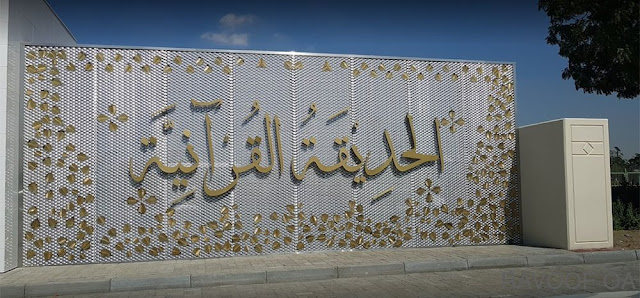 الحَدِيقَةُ القُرآنِيَّةُ